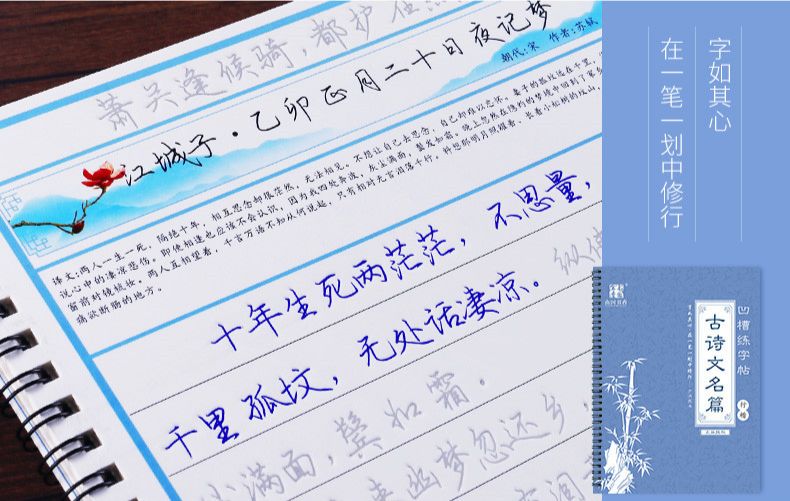 萧关逢候骑，都护在
江城子·乙卯正月二十日夜记梦
朝代：宋 作者：苏轼
译文：两人一生一死，隔绝十年，相互思念却很茫然，无法相见。不想让自己去思念，自己却难以忘怀。妻子的孤坟远在千里，
说心中的凄凉悲伤。即使相逢也应该不会认识，因为我四处奔波，灰尘满面，鬓发如霜。晚上忽然在隐约的梦境中回到了家乡
窗前对镜梳妆。两人互相望着，千言万语不知从何说起，只有相对无言泪落千行。料想那明月照耀着、长着小松树的坟山，
痛欲断肠的地方。
十年生死两茫茫，不思量，
千里孤坟，无处话凄凉。
纵使
尘满面，鬓如霜。
来幽梦忽还乡，
字如其心
在一笔一划中修行
凹槽练字帖
古诗文名篇
行楷